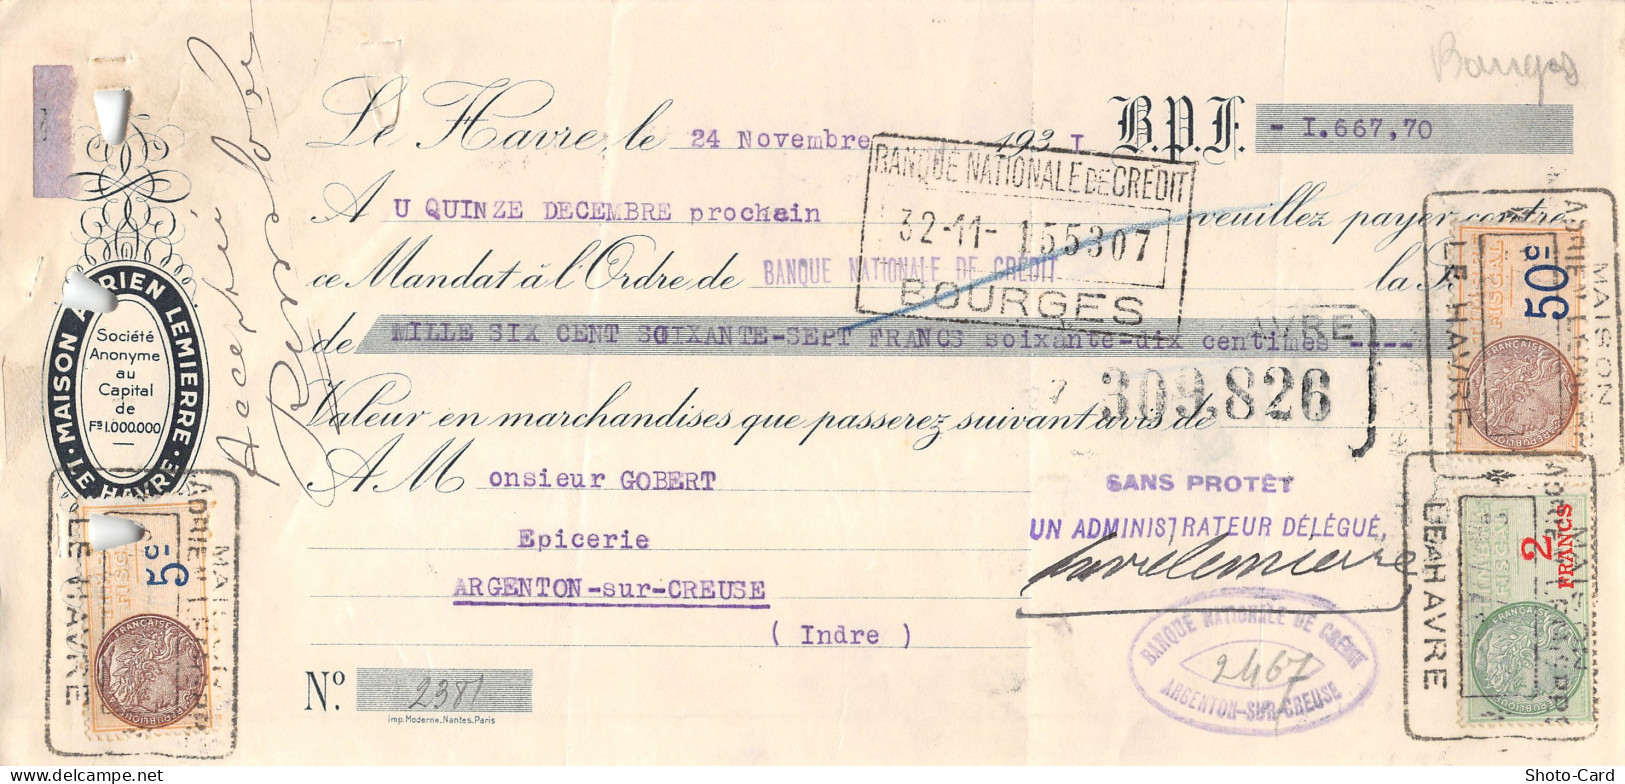 Bourges
Le Havre, le 24 Novembre 193 I B.P.F. - I.667,70
A U QUINZE DECEMBRE prochain veuillez payer contre
ce Mandat à l'Ordre de BANQUE NATIONALE DE CREDIT la
de MILLE SIX CENT SOIXANTE-SEPT FRANCS soixante-dix centimes ----
Valeur en marchandises que passerez suivant avis de
A M onsieur GOBERT
Epicerie
ARGENTON-sur-CREUSE
( Indre )
No. 2381
Imp. Moderne, Nantes, Paris
BANQUE NATIONALE DE CREDIT
32-11- 155307
BOURGES
HAVRE
309.826
SANS PROTÊT
UN ADMINISTRATEUR DÉLÉGUÉ,
BANQUE NATIONALE DE CRÉDIT
2467
ARGENTON-SUR-CREUSE
MAISON ADRIEN LEMIERRE
LE HAVRE
Société
Anonyme
au
Capital
de
Fs 1.000.000
Accepté
5c
FISCAL
MAISON
ADRIEN LEMIERRE
LE HAVRE
50c
FISCAL
MAISON
ADRIEN LEMIERRE
LE HAVRE
2
FRANCS
FISCAL
MAISON
ADRIEN LEMIERRE
LE HAVRE
Shoto-Card